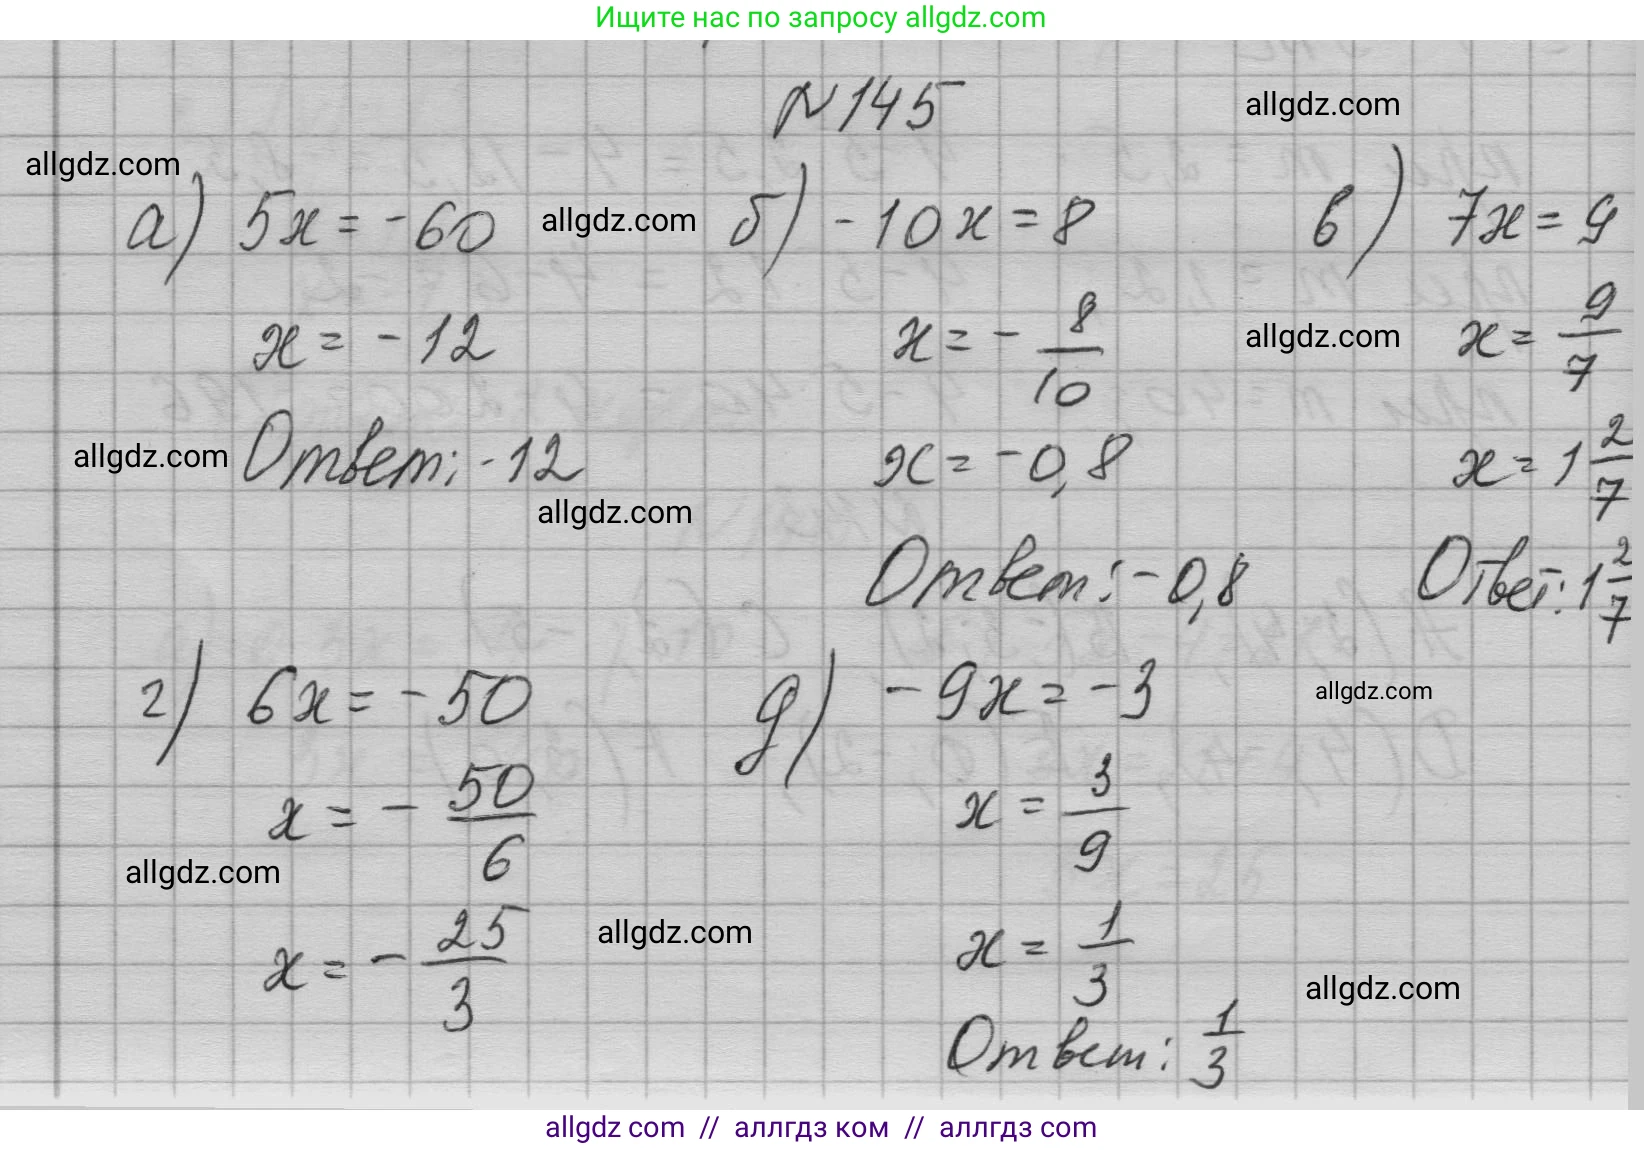 Ищите нас по запросу allgdz.com
№145
allgdz.com
allgdz.com
а) 5x = -60
allgdz.com
б) -10x = 8
в) 7x = 9
x = -12
x = - 8/10
allgdz.com
x = 9/7
allgdz.com
Ответ: -12
x = -0,8
x = 1 2/7
allgdz.com
Ответ: -0,8
Ответ: 1 2/7
г) 6x = -50
д) -9x = -3
allgdz.com
x = - 50/6
x = 3/9
allgdz.com
x = - 25/3
allgdz.com
x = 1/3
allgdz.com
Ответ: 1/3
allgdz com // аллгдз ком // аллгдз com